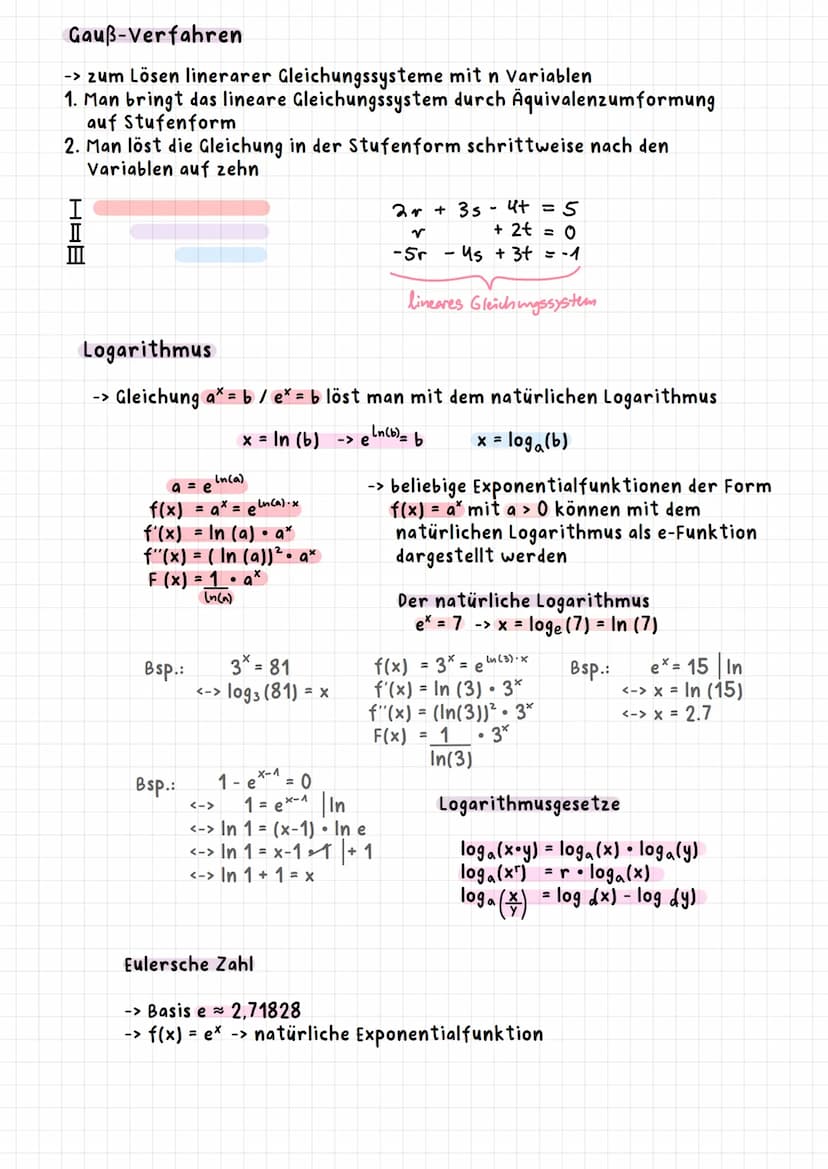 Gauß-Verfahren
-> zum Lösen linerarer Gleichungssysteme mit n Variablen
1. Man bringt das lineare Gleichungssystem durch Äquivalenzumformung
auf Stufenform
2. Man löst die Gleichung in der Stufenform schrittweise nach den
Variablen auf zehn
I
II
III
2r + 3s - 4t = 5
r + 2t = 0
-5r - 4s + 3t = -1
lineares Gleichungssystem
Logarithmus
-> Gleichung aˣ = b / eˣ = b löst man mit dem natürlichen Logarithmus
x = ln (b) -> e^ln(b) = b x = logₐ(b)
a = e^ln(a)
f(x) = aˣ = e^ln(a)·x
f'(x) = ln (a) • aˣ
f''(x) = ( ln (a))² • aˣ
F (x) = 1 • aˣ
ln(a)
-> beliebige Exponentialfunktionen der Form
f(x) = aˣ mit a > 0 können mit dem
natürlichen Logarithmus als e-Funktion
dargestellt werden
Der natürliche Logarithmus
eˣ = 7 -> x = logₑ(7) = ln (7)
Bsp.: 3ˣ = 81
<-> log₃(81) = x
f(x) = 3ˣ = e^ln(3)·x
f'(x) = ln (3) • 3ˣ
f''(x) = (ln(3))² • 3ˣ
F(x) = 1 • 3ˣ
ln(3)
Bsp.: eˣ = 15 | ln
<-> x = ln (15)
<-> x = 2.7
Bsp.: 1 - e^x-1 = 0
<-> 1 = e^x-1 | ln
<-> ln 1 = (x-1) • ln e
<-> ln 1 = x-1 | + 1
<-> ln 1 + 1 = x
Logarithmusgesetze
logₐ(x•y) = logₐ(x) • logₐ(y)
logₐ(xʳ) = r • logₐ(x)
logₐ(x/y) = log (x) - log (y)
Eulersche Zahl
-> Basis e ≈ 2,71828
-> f(x) = eˣ -> natürliche Exponentialfunktion